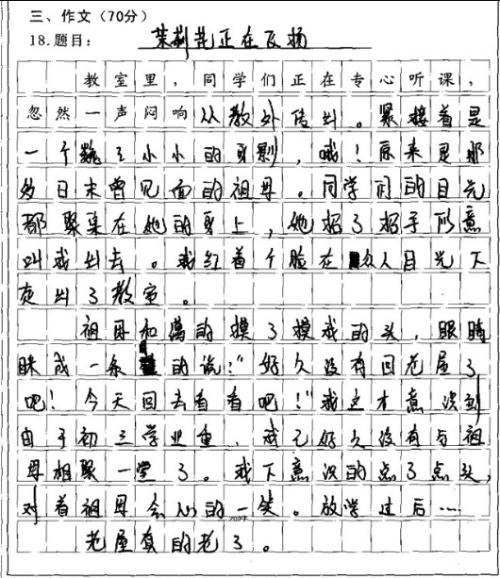 三、作文（70分）
18.题目：茉莉花正在飞扬
教室里，同学们正在专心听课，
忽然一声闷响从教外传出。紧接着是
一个巍巍小小的身影，哦！原来是那
多日未曾见面的祖母。同学们的目光
都聚集在她的身上，她招了招手似意
叫我出去。我红着个脸在众人目光下
走出了教室。
祖母和蔼的摸了摸我的头，眼睛
眯成一条的说："好久没有回老屋了
吧！今天回去看看吧！"我这才意识到
由于初三学业重，我已好久没有与祖
母相聚一堂了。我下意识的点了点头，
对着祖母会心的一笑。放学过后……
老屋真的老了。